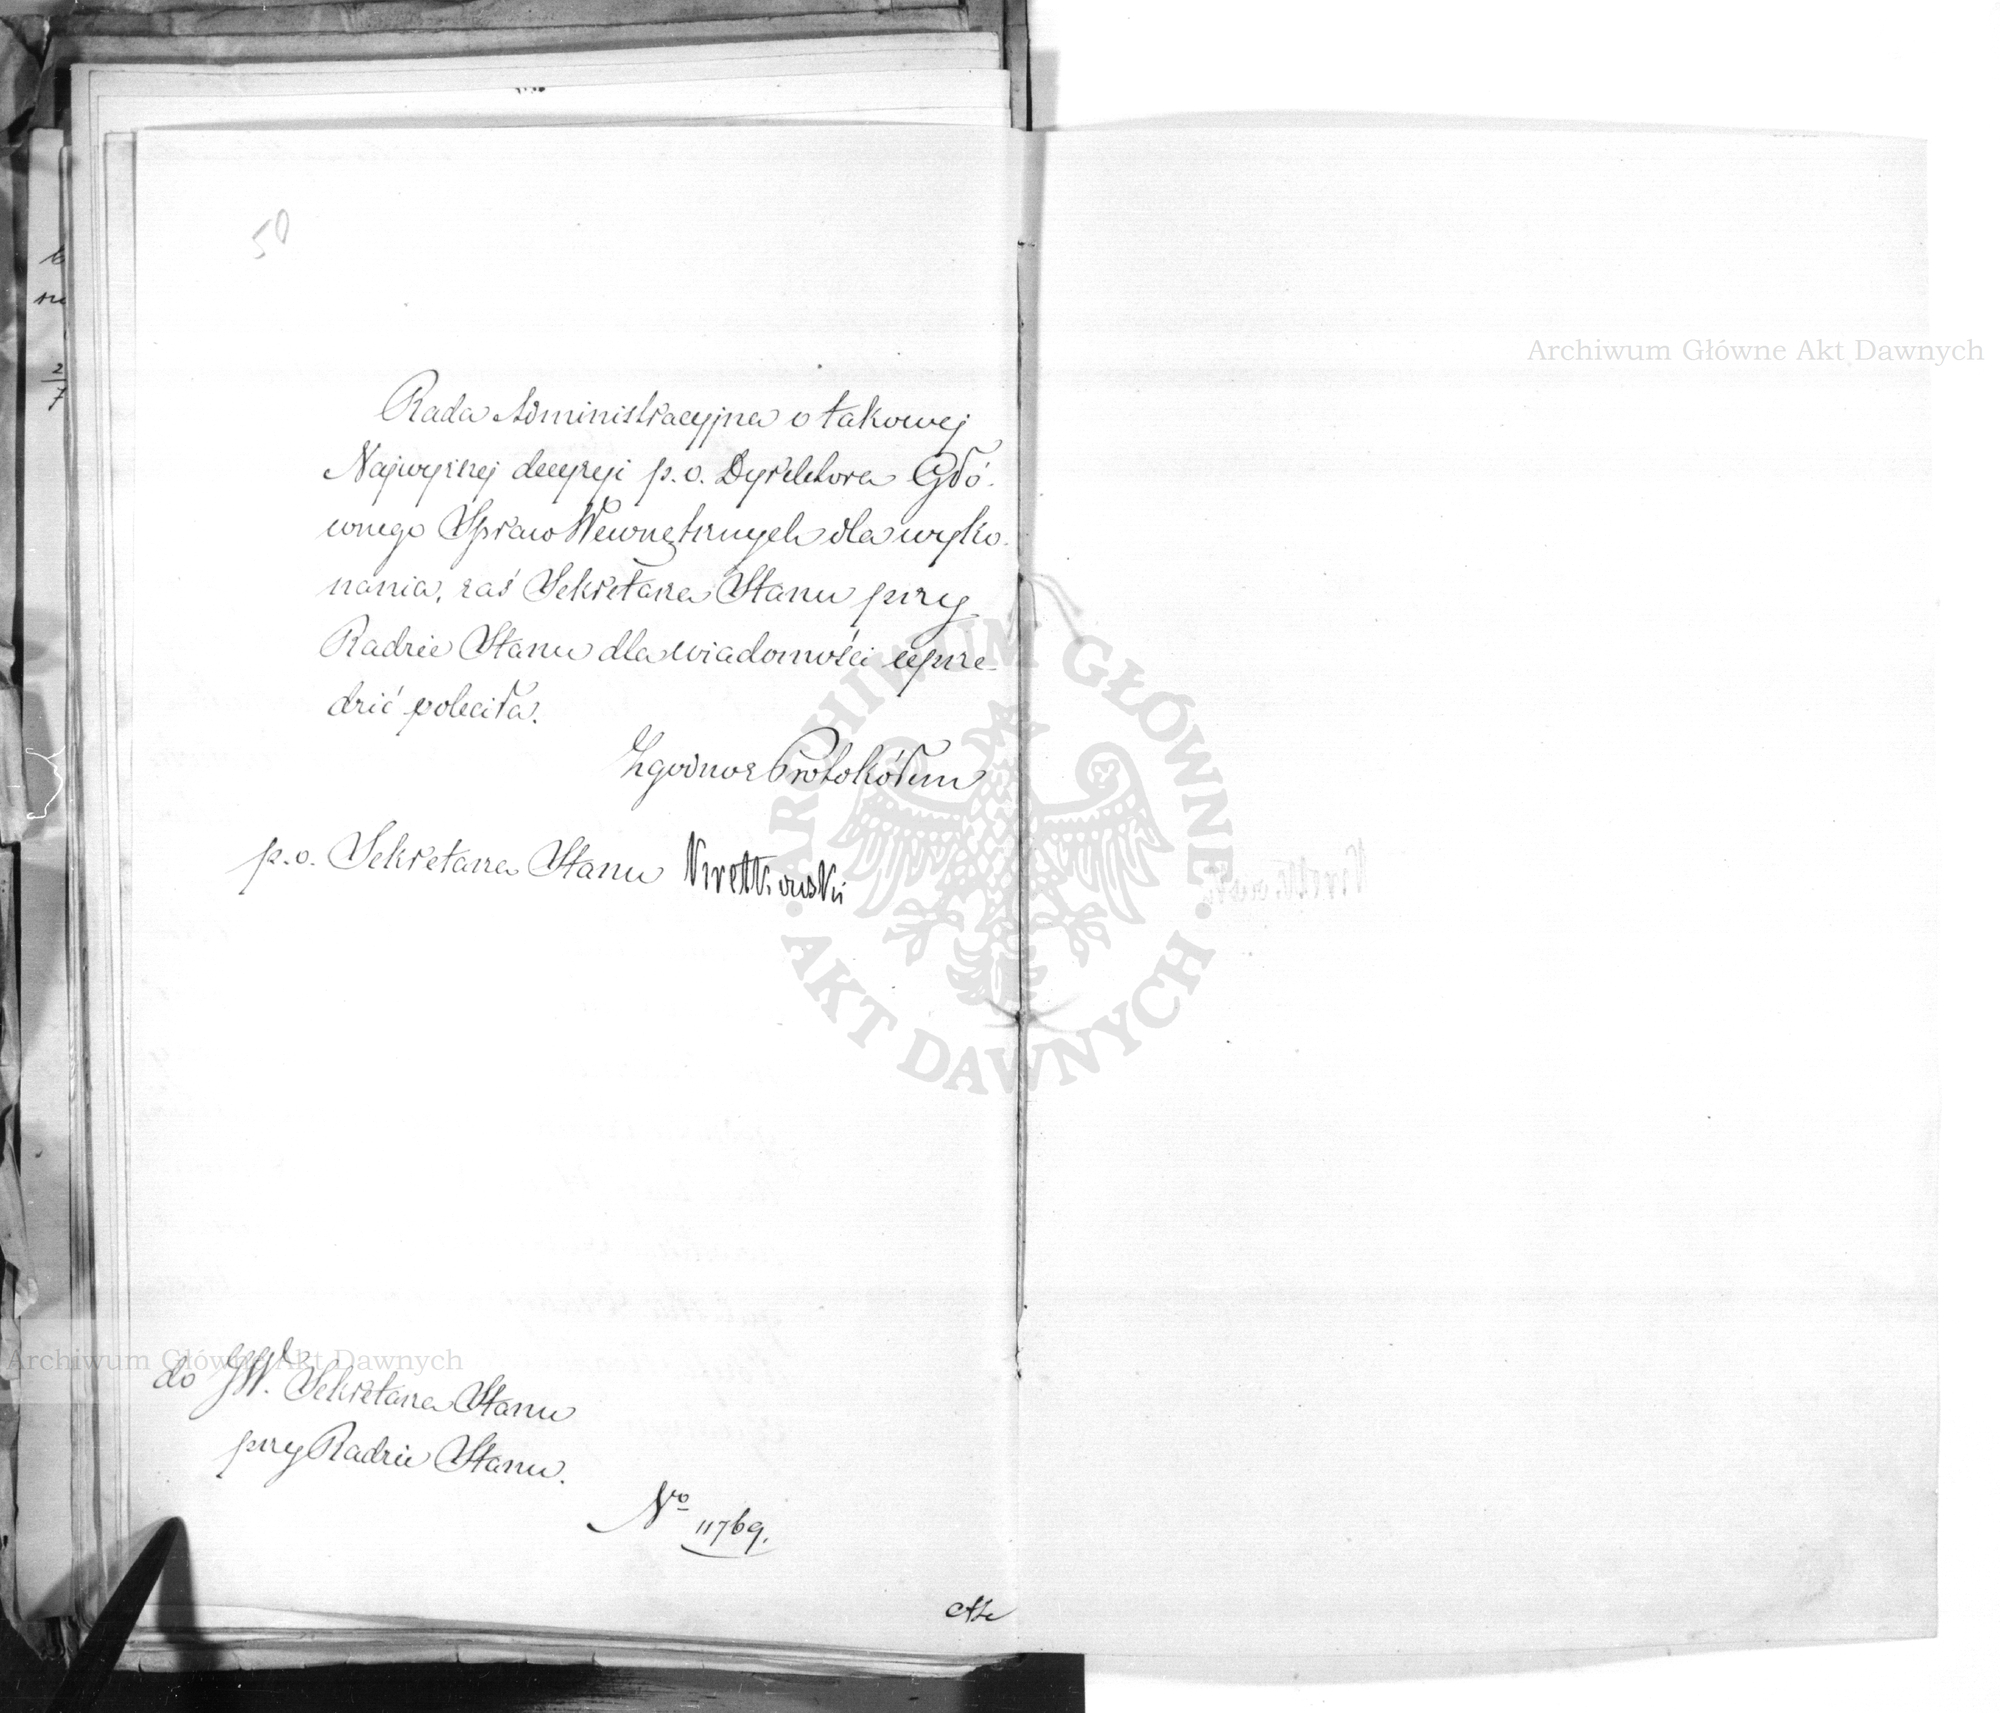 50
Rada Administracyjna o takowej
Najwyższej decyzyi p. o. Dyrektora Głó-
wnego Spraw Wewnętrznych dla wyko-
nania, zaś Sekretarza Stanu przy
Radzie Stanu dla wiadomości uprze-
dzić poleciła.
Zgodno z Protokółem
p. o. Sekretarza Stanu
do JW. Sekretarza Stanu
przy Radzie Stanu.
No 11769.
Archiwum Główne Akt Dawnych
Archiwum Główne Akt Dawnych
ARCHIWUM GŁÓWNE
AKT DAWNYCH